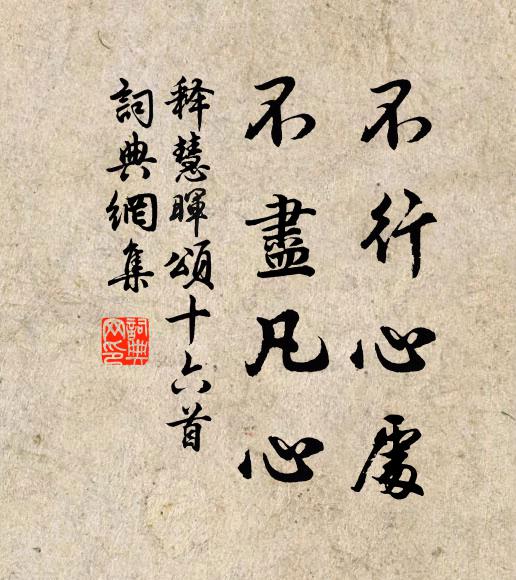 不行心處
不盡凡心
释慧暉頌十六首
詞典網集
詞典
网印